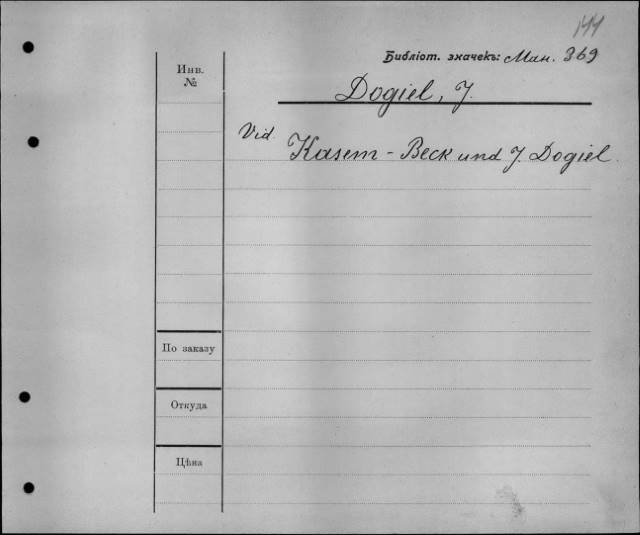 Инв.
№
Библіот. значекъ: Ман. 369
Dogiel, J.
Vid.
Kasem-Beck und J. Dogiel.
По заказу
Откуда
Цѣна